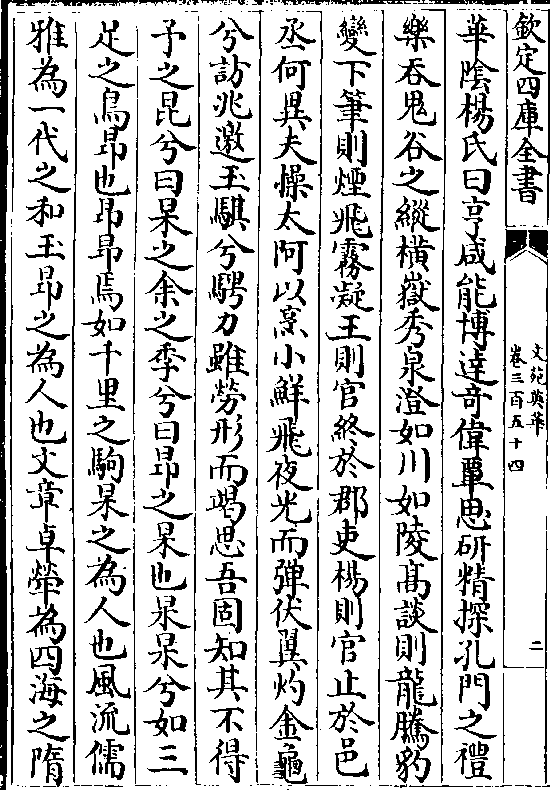 欽定四庫全書
文苑英華
卷三百五十四
二
華陰楊氏曰亨咸能博達竒偉覃思研精探孔門之禮
樂吞鬼谷之縱橫嶽秀泉澄如川如陵髙談則龍騰豹
變下筆則煙飛霧凝王則官終於郡吏楊則官止於邑
丞何異夫操太阿以烹小鮮飛夜光而彈伏翼灼金龜
兮訪兆邀玉騏兮騁力雖勞形而竭思吾固知其不得
予之昆兮曰杲之余之季兮曰昻之杲也杲杲兮如三
足之烏昻也昻昻焉如千里之駒杲之為人也風流儒
雅為一代之和玉昻之為人也文章卓犖為四海之隋